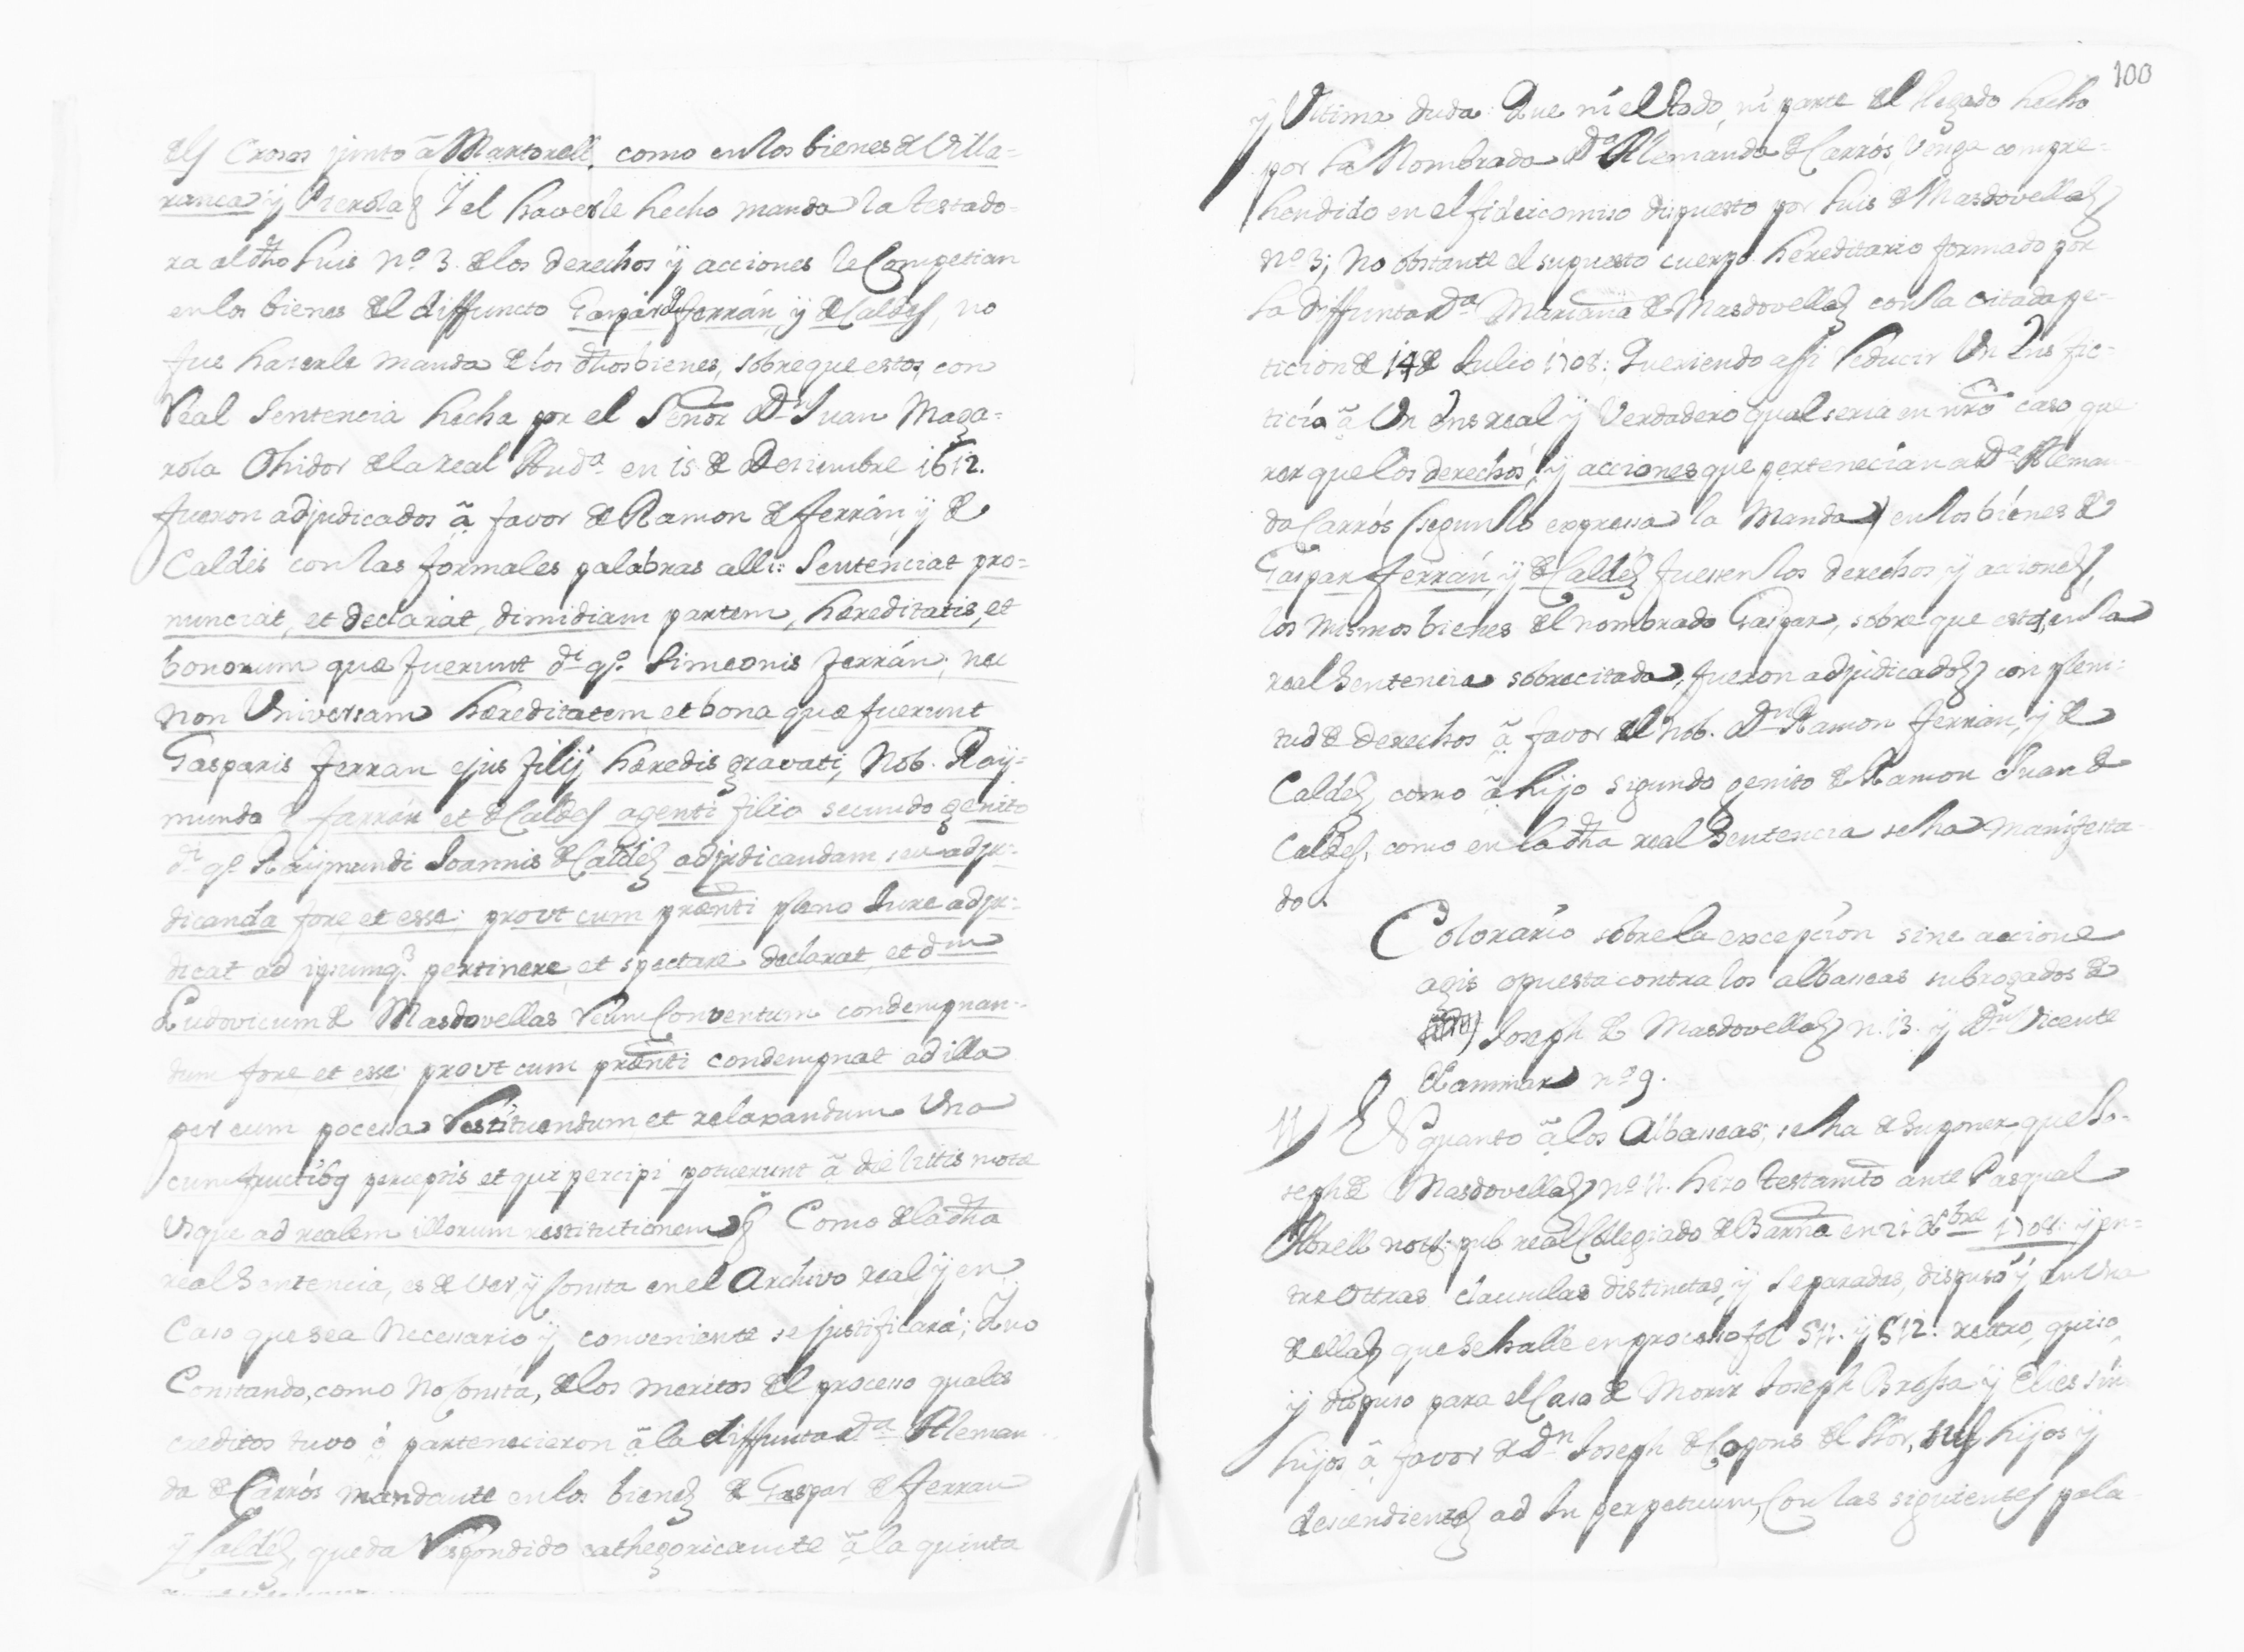 dels Crosos junto â Martorell, como en los bienes de Villa=
franca y Pierola; Y el haverle hecho manda la testado=
ra al dho Luis nº 3. de los derechos y acciones le Competian
en los bienes del diffuncto Gaspar de Ferrán y de Caldes, no
fue hazerle manda de los dhos bienes, sobre que estos, con
Real Sentencia hecha por el Señor Dn Juan Maga=
rola Ohidor de la real Audª en 15 de Desiembre 1612.
fueron adjudicados â favor de Ramon de Ferrán y de
Caldés con las formales palabras alli: Sententiat pro=
nunciat, et declarat, dimidiam partem, hæreditatis, et
bonorum quæ fuerunt di qº. Simeonis ferrán; nec
non Universam hæreditatem et bona quæ fuerunt
Gasparis ferran ejus filij hæredis gravati, Nob. Ray=
mundo de farrán et de Caldes agenti filio secundo genito
di qº Raÿmundi Joannis de Caldés adjudicandam seu adju=
dicanda fore et esse: prout cum præñti pleno Jure adju=
dicat ad ipsumq3 pertinere et spectare declarat et dnm
Ludovicum de Masdovellas Reum Conventum condempnan=
dum fore et esse prout cum præñti condempnat ad illa
per eum pocessa Restituendum et relaxandum Una
cum fructibq perceptis et qui percipi potuerunt â die littis motæ
usque ad realem illorum restitutionem; Como de la dha
real Sentencia, es de ver, y Consta en el Archivo real y en
Caso que sea Necessario y conveniente se justificará; Y no
Constando, como No Consta, de los meritos del processo quales
creditos tuvo ó partenecieron â la diffunta Dª Aleman=
da de Carrós mandante en los bienes de Gaspar de Ferran
y Caldés, queda Respondido cathegoricamte â la quinta
100
y Ultima duda: Que ni el todo, ni parte del llegado hecho
por la Nombrada Dª Alemanda de Carrós, Venga compre=
hendido en el fideicomiso dispuesto por Luis de Masdovellas
nº 3; No obstante el supuesto cuerpo hereditario formado por
la diffunta Dª Mariana de Masdovellas con la citada pe=
ticion de 14 de Julio 1708; Queriendo assi Reducir Un Ens fic=
ticio â Un Ens real y Verdadero qual seria en nro caso, que
rer que los derechos, y acciones que pertenecian a Dª Aleman
da Carrós (segun lo expressa la Manda) en los bienes de
Gaspar Ferrán, y de Caldés fuessen los derechos y acciones,
los mismos bienes del nombrado Gaspar, sobre que estos, en la
real Sentencia sobrecitada, fueron adjudicados con pleni=
tud de derechos â favor del Nob. Dn Ramon Ferrán, y de
Caldés, como â hijo segundo genito de Ramon Juan de
Caldes, como en la dha real Sentencia se ha Manifesta
do.
Colorário sobre la excepción sine accione
agis opuesta contra los albaceas subrogados de
Joseph de Masdovellas n. 13. y Dn Vicente
Examinar nº 9.
11) EN quanto â los Albaceas, se ha de suponer, que Jo=
seph de Masdovellas nº 11. hizo testamto ante Pasqual
Abrell notº. pub. real Collegiado de Barna en 21 dbre 1708. y en=
tre Ottras clausulas distinctas, y separadas, dispusó y en Una
de ellas que se halle en processo fol. 511. y 512. rettro, quiso
y dispuso para el Caso de Morir Joseph Brossa y Elies sin
hijos â favor de Dn Joseph de Copons del Llor, sus hijos y
descendientes ad In perpetuum, Con las siguientes pala